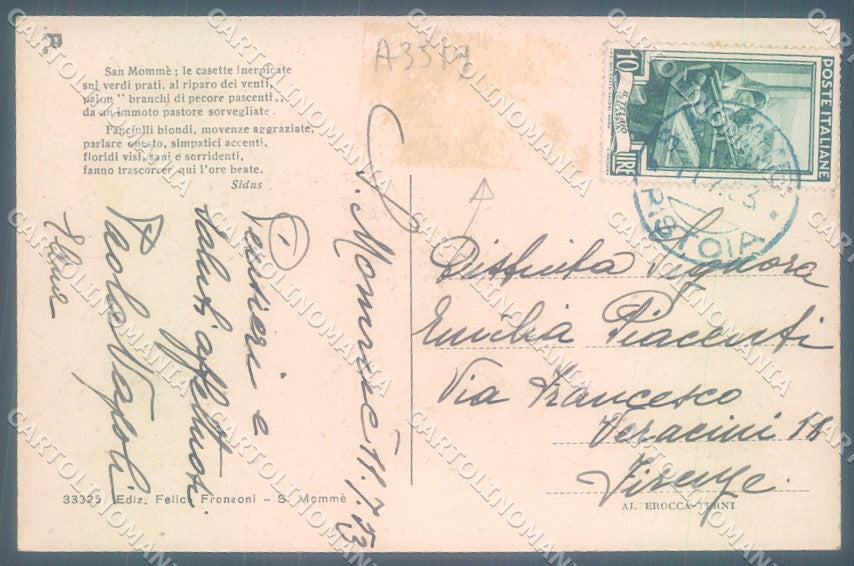 P.
A3517
San Mommè ; le casette inerpicate
sui verdi prati, al riparo dei venti,
branchi di pecore pascenti,
da un immoto pastore sorvegliate.
Fanciulli biondi, movenze aggraziate,
parlare onesto, simpatici accenti,
floridi visi, sani e sorridenti,
fanno trascorrer qui l'ore beate.
Sidus
10
LIRE
POSTE ITALIANE
PISTOIA
S. Mommè 11.7.53
Pensieri e
saluti affettuosi
Distinta Signora
Emilia Piacenti
Via Francesco
Veracini 18
Firenze.
33325 Ediz. Felice Fronzoni - S. Mommè
TERNI
CARTOLINOMANIA